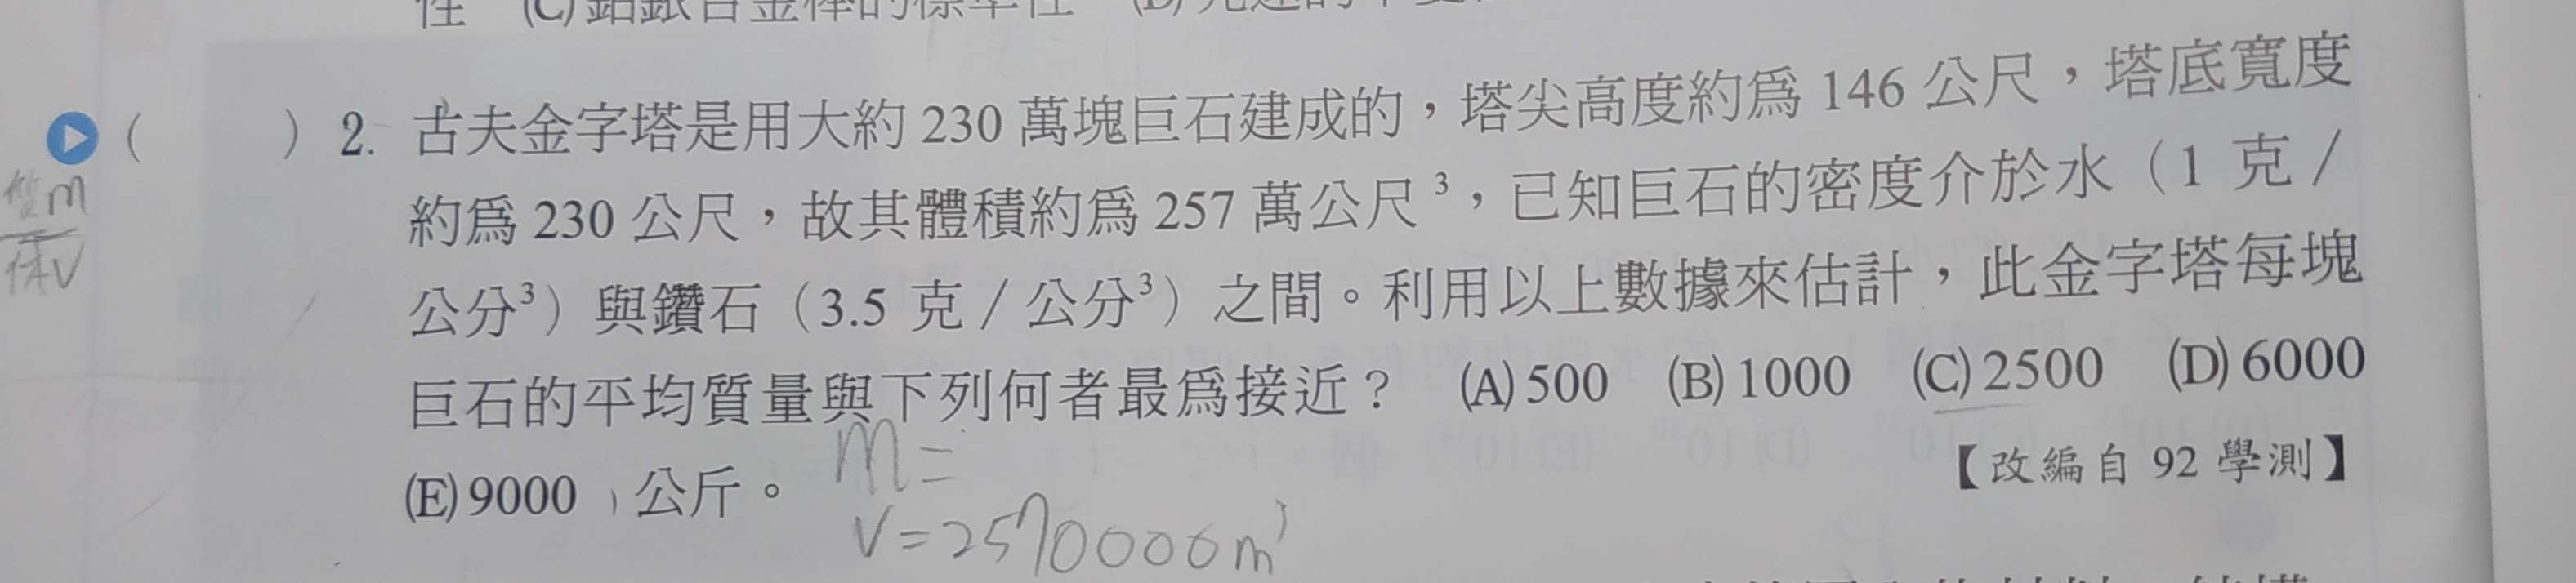 性 (C)鉑銥合金棒的標準性 (D)光速的不變性
( ) 2. 古夫金字塔是用大約 230 萬塊巨石建成的，塔尖高度約為 146 公尺，塔底寬度
約為 230 公尺，故其體積約為 257 萬公尺³，已知巨石的密度介於水（1 克／
公分³）與鑽石（3.5 克／公分³）之間。利用以上數據來估計，此金字塔每塊
巨石的平均質量與下列何者最為接近？ (A)500 (B)1000 (C)2500 (D)6000
(E)9000 公斤。 【改編自 92 學測】
質m
体V
m=
V=2570000m³